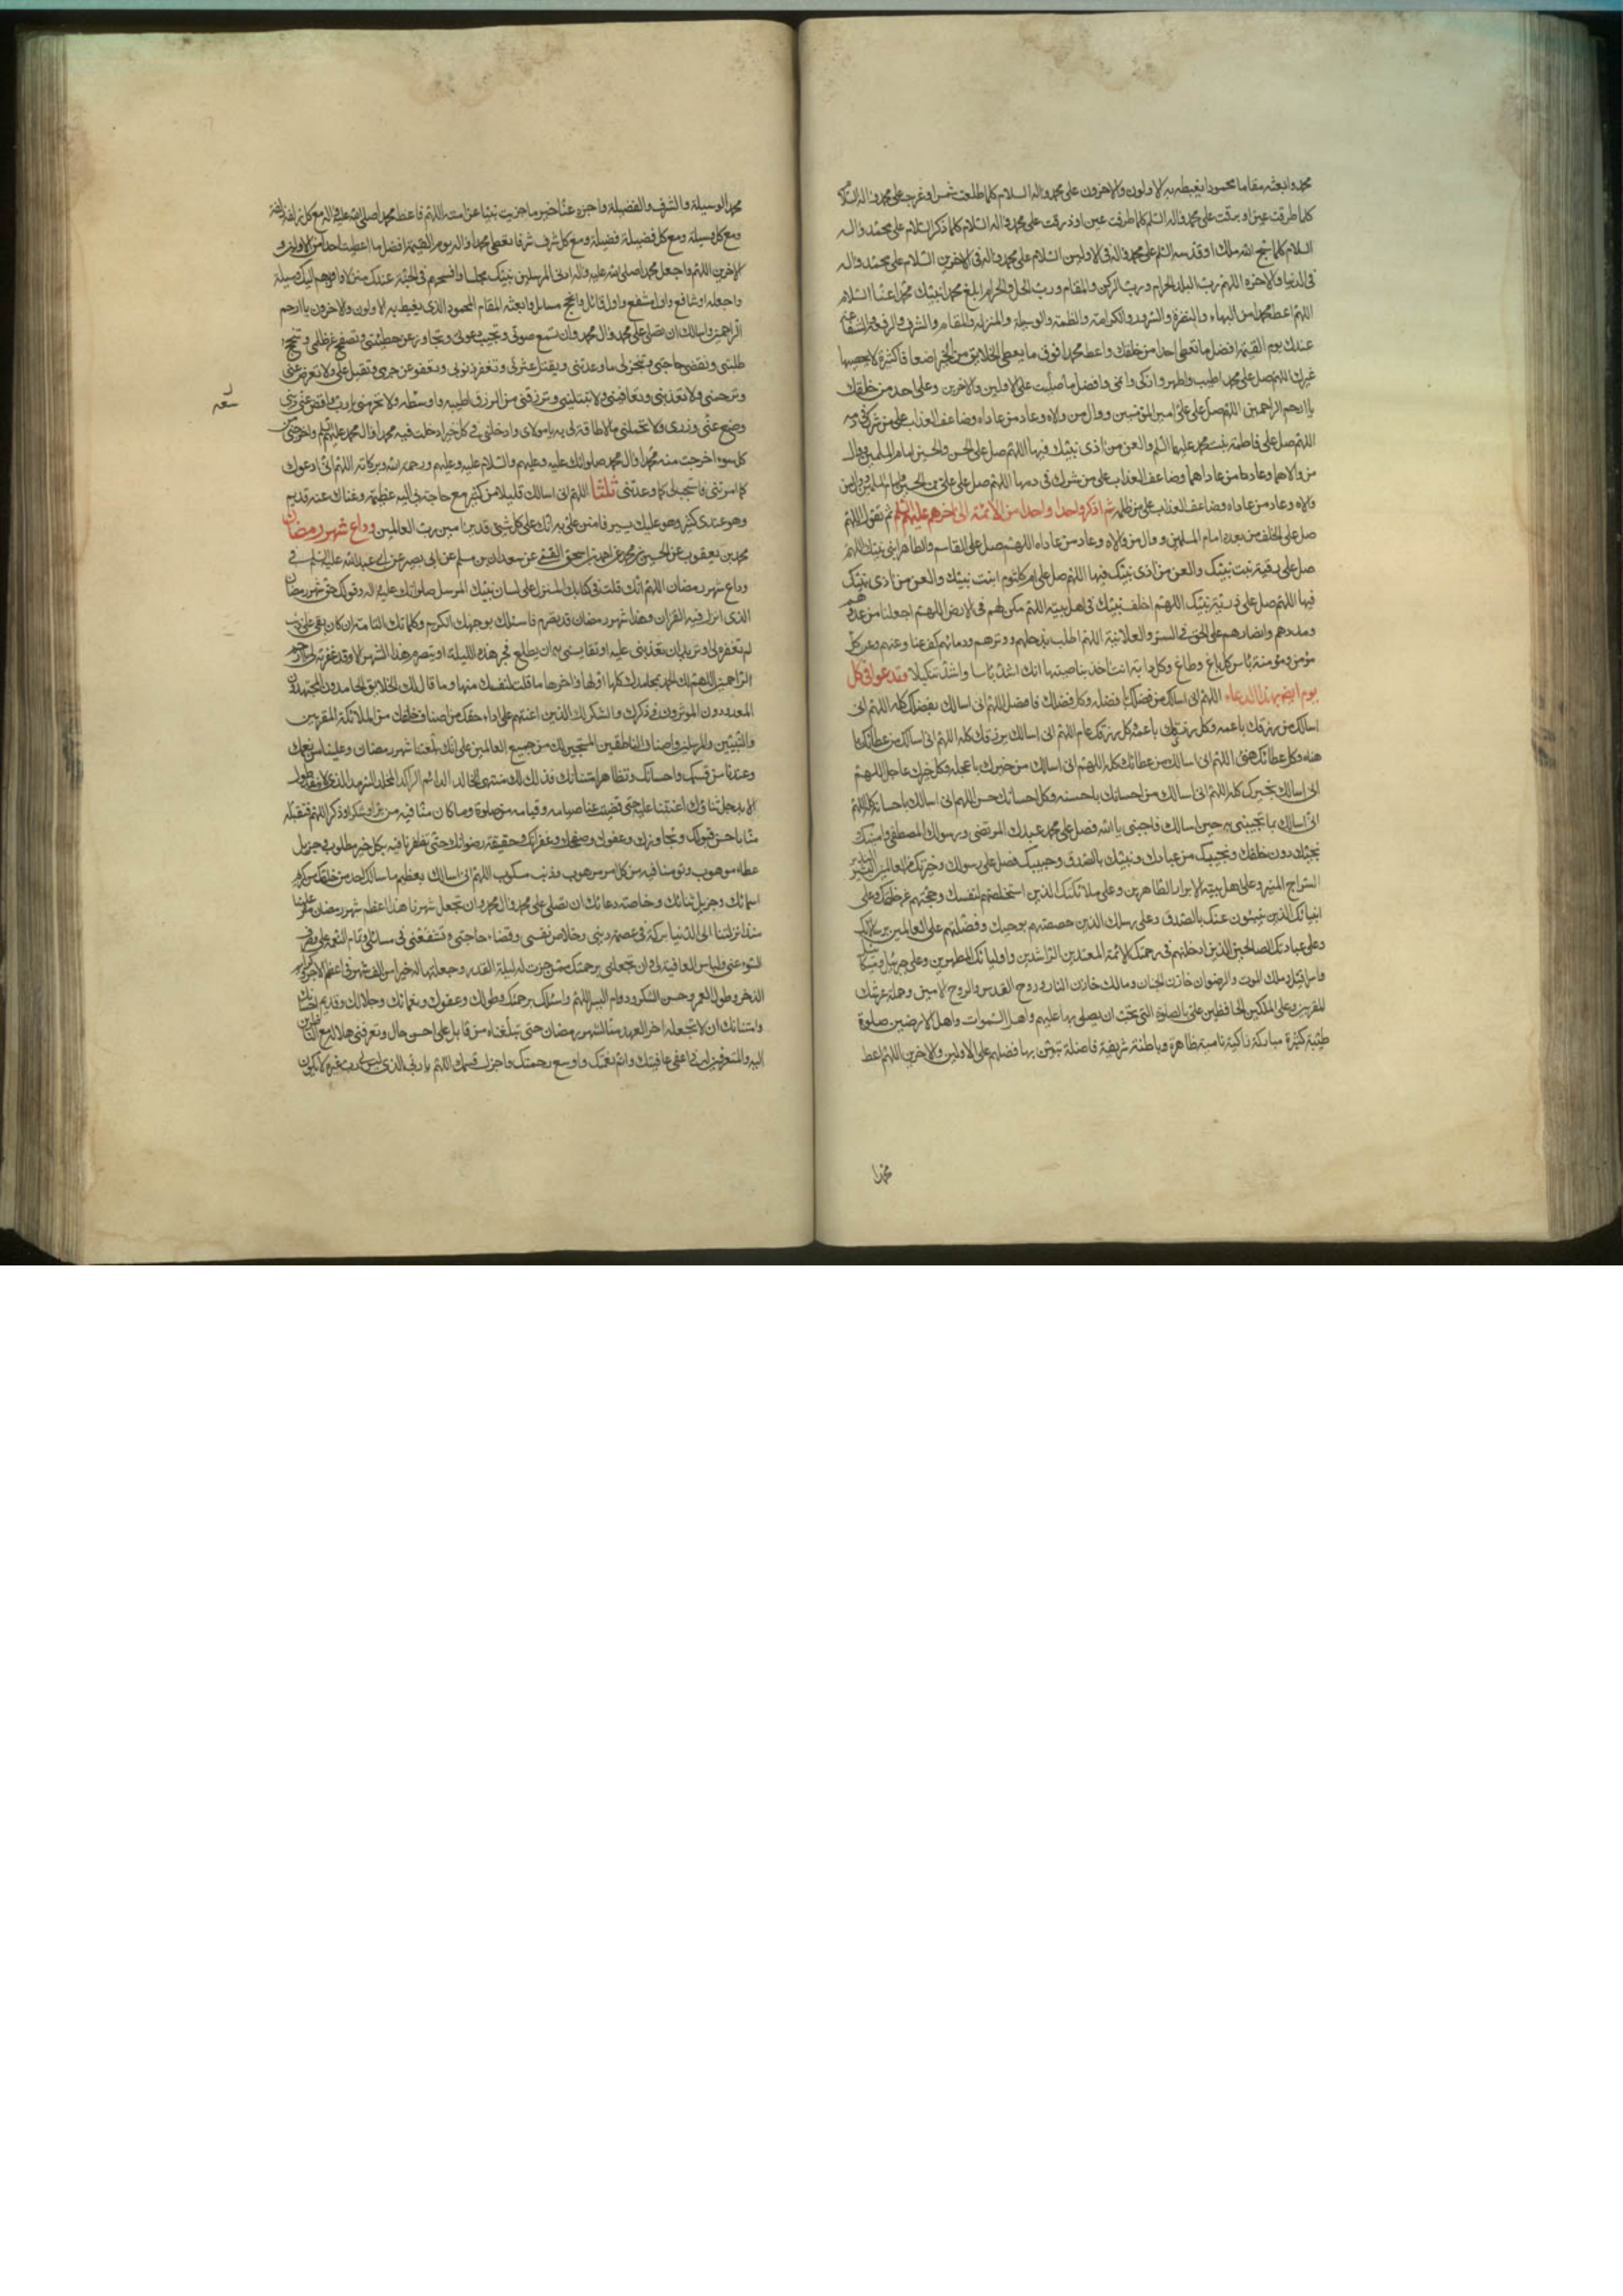 محمد وابعثه مقاما محمودا يغبطه به الاولون والاخرون على محمد واله السلام كلما طلعت شمس او غربت على محمد واله السلام
كلما طرفت عين او برقت على محمد واله السلم كلما طرفت عين او ذرفت على محمد واله السلام كلما ذكر السلام على محمد واله
السلام كلما سبح الله ملك او قدسه السلم على محمد واله في الاولين السلام على محمد واله في الاخرين السلام على محمد واله
في الدنيا والاخره اللهم رب البلد الحرام ورب الركن والمقام ورب الحل والحرام ابلغ محمدا نبيك محمد اعنا السلام
اللهم اعط محمدا من البهاء والنضرة والسرور والكرامة والغبطة والوسيلة والمنزلة والمقام والشرف والرفعة والشفاعة
عندك يوم القيمة افضل ما تعطي احدا من خلقك واعط محمدا فوق ما يعطي الخلايق من الخير اضعافا كثيرة لا يحصيها
غيرك اللهم صل على محمد اطيب واطهر وازكى وانمى وافضل ما صليت على الاولين والاخرين وعلى احد من خلقك
يا ارحم الراحمين اللهم صل على علي امير المؤمنين ووال من والاه وعاد من عاداه وضاعف العذاب على من شرك في دمه
اللهم صل على فاطمة بنت محمد عليها السلم والعن من اذى نبيك فيها اللهم صل على الحسن والحسين امام المسلمين ووال
من والاهما وعاد من عاداهما وضاعف العذاب على من شرك في دمها اللهم صل على علي بن الحسين امام المسلمين ووال من
والاه وعاد من عاداه وضاعف العذاب على من ظلمه ثم اذكر واحدا واحدا من الائمة الى اخرهم عليهم السلم ثم تقول اللهم
صل على الخلف من بعده امام المسلمين ووال من والاه وعاد من عاداه اللهم صل على القاسم والطاهر ابني نبيك اللهم
صل على رقية بنت نبيك والعن من اذى نبيك فيها اللهم صل على ام كلثوم ابنت نبيك والعن من اذى نبيك
فيها اللهم صل على ذرية نبيك اللهم اخلف نبيك في اهل بيته اللهم مكن لهم في الارض اللهم اجعلنا من عددهم
ومددهم وانصارهم على الحق في السر والعلانية اللهم اطلب بذحلهم ووترهم ودمائهم وكف عنا وعنهم وعن كل
مؤمن ومؤمنة باس كل باغ وطاغ وكل دابة انت اخذ بناصيتها انك اشد باسا واشد تنكيلا وتدعو في كل
يوم ايضا بهذا الدعاء اللهم اني اسالك من فضلك بافضله وكل فضلك فاضل اللهم اني اسالك بفضلك كله اللهم اني
اسالك من رزقك باعمه وكل رزقك عام اللهم اني اسالك برزقك كله اللهم اني اسالك من عطائك با
هنئه وكل عطائك هنئ اللهم اني اسالك من عطائك كله اللهم اني اسالك من خيرك باعجله وكل خيرك عاجل اللهم
اني اسالك بخيرك كله اللهم اني اسالك من احسانك باحسنه وكل احسانك حسن اللهم اني اسالك باحسانك كله اللهم
اني اسالك بما تجيبني به حين اسالك فاجبني يا الله فصل على محمد عبدك المرتضى ورسولك المصطفى وامينك
نجيك دون خلقك ونجيبك من عبادك ونبيك بالصدق وحبيبك فصل على رسولك وخيرتك من العالمين البشير النذير
السراج المنير وعلى اهل بيته الابرار الطاهرين وعلى ملائكتك الذين استخلصتهم لنفسك وحجبتهم عن خلقك وعلى
انبيائك الذين ينبئون عنك بالصدق وعلى رسلك الذين خصصتهم بوحيك وفضلتهم على العالمين برسالاتك
وعلى عبادك الصالحين الذين ادخلتهم في رحمتك الائمة المهتدين الراشدين واوليائك المطهرين وعلى جبرئيل وميكائيل
واسرافيل وملك الموت والرضوان خازن الجنان ومالك خازن النار وروح القدس والروح الامين وحملة عرشك
المقربين وعلى الملكين الحافظين علي بالصلوة التي تحب ان يصلى بها عليهم واهل السموات واهل الارضين صلوة
طيبة كثيرة مباركة زاكية نامية ظاهرة وباطنة شريفة فاضلة تبين بها فضلهم على الاولين والاخرين اللهم اعط
محمدا
محمدا الوسيلة والشرف والفضيلة واجزه عنا خير ما جزيت نبيا عن امته اللهم فاعط محمدا صلى الله عليه واله مع كل زلفة زلفة
ومع كل وسيلة وسيلة ومع كل فضيلة فضيلة ومع كل شرف شرفا تعطي محمدا واله يوم القيمة افضل ما اعطيت احدا من الاولين و
الاخرين اللهم واجعل محمدا صلى الله عليه واله ادنى المرسلين منك مجلسا وافسحهم في الجنة عندك منزلا واقربهم اليك وسيلة
واجعله اول شافع واول مشفع واول قائل وانجح سائل وابعثه المقام المحمود الذي يغبطه به الاولون والاخرون يا ارحم
الراحمين واسالك ان تصلي على محمد وال محمد وان تسمع صوتي وتجيب دعوتي وتجاوز عن خطيئتي وتصفح عن ظلمي وتنجح
طلبتي وتقضي حاجتي وتنجز لي ما وعدتني وتقيل عثرتي وتغفر ذنوبي وتعفو عن جرمي وتقبل علي ولا تعرض عني
وترحمني ولا تعذبني وتعافيني ولا تبتليني وترزقني من الرزق اطيبه واوسعه ولا تحرمني يا رب واقض عني ديني
وضع عني وزري ولا تحملني ما لا طاقة لي به يا مولاي وادخلني في كل خير ادخلت فيه محمدا وال محمد عليهم السلم واخرجني من
كل سوء اخرجت منه محمدا وال محمد صلواتك عليه وعليهم والسلام عليه وعليهم ورحمة الله وبركاته اللهم اني ادعوك
كما امرتني فاستجب لي كما وعدتني ثلثا اللهم اني اسالك قليلا من كثير مع حاجة بي اليه عظيمة وغناك عنه قديم
وهو عندي كثير وهو عليك يسير فامنن علي به انك على كل شيء قدير امين رب العالمين وداع شهر رمضان
محمد بن يعقوب عن الحسين بن محمد عن احمد بن اسحق القمي عن سعدان بن مسلم عن ابي بصير عن ابي عبد الله عليه السلم في
وداع شهر رمضان اللهم انك قلت في كتابك المنزل على لسان نبيك المرسل صلواتك عليه واله وقولك حق شهر رمضان
الذي انزل فيه القران وهذا شهر رمضان قد تصرم فاسئلك بوجهك الكريم وكلماتك التامة ان كان بقي علي ذنب
لم تغفره لي او تريد ان تعذبني عليه او تقايسني به ان يطلع فجر هذه الليلة او يتصرم هذا الشهر الا وقد غفرته لي يا ارحم
الراحمين اللهم لك الحمد بمحامدك كلها اولها واخرها ما قلت لنفسك منها وما قال لك الخلايق الحامدون المجتهدون
المعدودون الموثرون في ذكرك والشكر لك الذين اعنتهم على اداء حقك من اصناف خلقك من الملائكة المقربين
والنبيين والمرسلين واصناف الناطقين المسبحين لك من جميع العالمين على انك بلغتنا شهر رمضان وعلينا من نعمك
وعندنا من قسمك واحسانك وتظاهر امتنانك فذلك لك منتهى الخالد الدائم الراكد المخلد السرمد الذي لا ينفد طول
الابد جل ثناؤك اعنتنا عليه حتى قضيت عنا صيامه وقيامه من صلوة وما كان منا فيه من بر او شكر او ذكر اللهم فتقبله
منا باحسن قبولك وتجاوزك وعفوك وصفحك وغفرانك وحقيقة رضوانك حتى تظفرنا فيه بكل خير مطلوب وجزيل
عطاء موهوب وتومننا فيه من كل امر مرهوب وذنب مكسوب اللهم اني اسالك بعظيم ما سالك احد من خلقك من كريم
اسمائك وجزيل ثنائك وخاصة دعائك ان تصلي على محمد وال محمد وان تجعل شهرنا هذا اعظم شهر رمضان مر علينا
منذ انزلتنا الى الدنيا بركة في عصمة ديني وخلاص نفسي وقضاء حاجتي وتشفعني في مسائلي وتمام النعمة علي وصرف
السوء عني ولباس العافية لي وان تجعلني برحمتك ممن حزت له ليلة القدر وجعلتها له خيرا من الف شهر في اعظم الاجر وكرائم
الذخر وطول العمر وحسن الشكر ودوام اليسر اللهم واسئلك برحمتك وطولك وعفوك ونعمائك وجلالك وقديم احسانك
وامتنانك ان لا تجعله اخر العهد منا لشهر رمضان حتى تبلغناه من قابل على احسن حال وتعرفني هلاله مع الناظرين
اليه والمتعرفين له في اعفى عافيتك واتم نعمتك واوسع رحمتك واجزل قسمك اللهم يا ربي الذي ليس لي رب غيره لا يكون